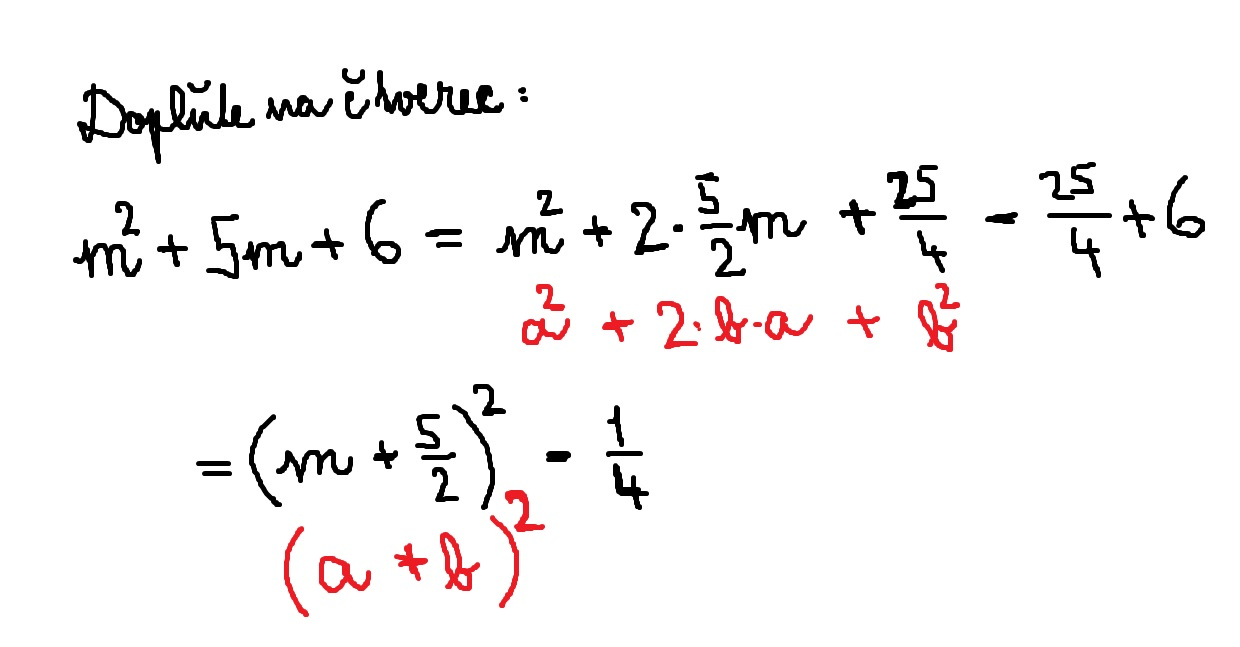 Doplňte na čtverec:
m² + 5m + 6 = m² + 2 · 5/2 m + 25/4 - 25/4 + 6
a² + 2 · b · a + b²
= (m + 5/2)² - 1/4
(a + b)²